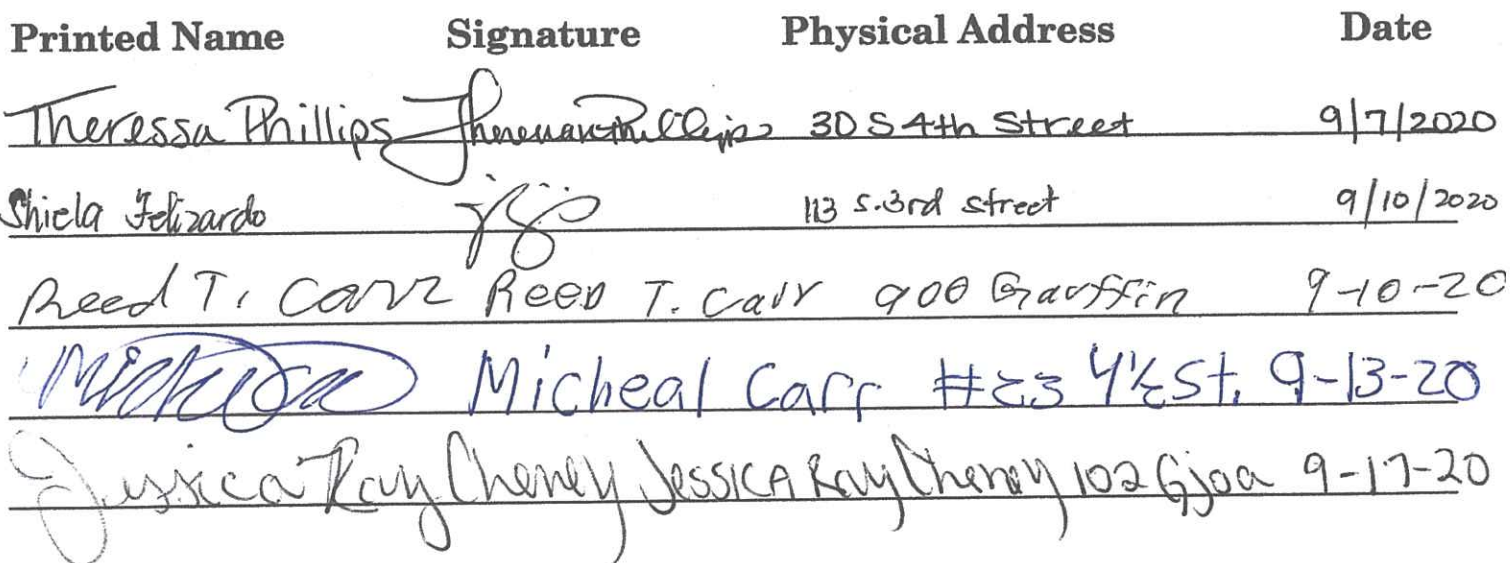 Printed Name Signature Physical Address Date
Theressa Phillips Phillips 30 S 4th Street 9/7/2020
Shiela Felizardo 113 S. 3rd street 9/10/2020
Reed T. Carr Reed T. Carr 900 9-10-20
Micheal Carr #23 4½ St. 9-13-20
Jessica Ray Cheney Jessica Ray Cheney 102 Gjoa 9-17-20